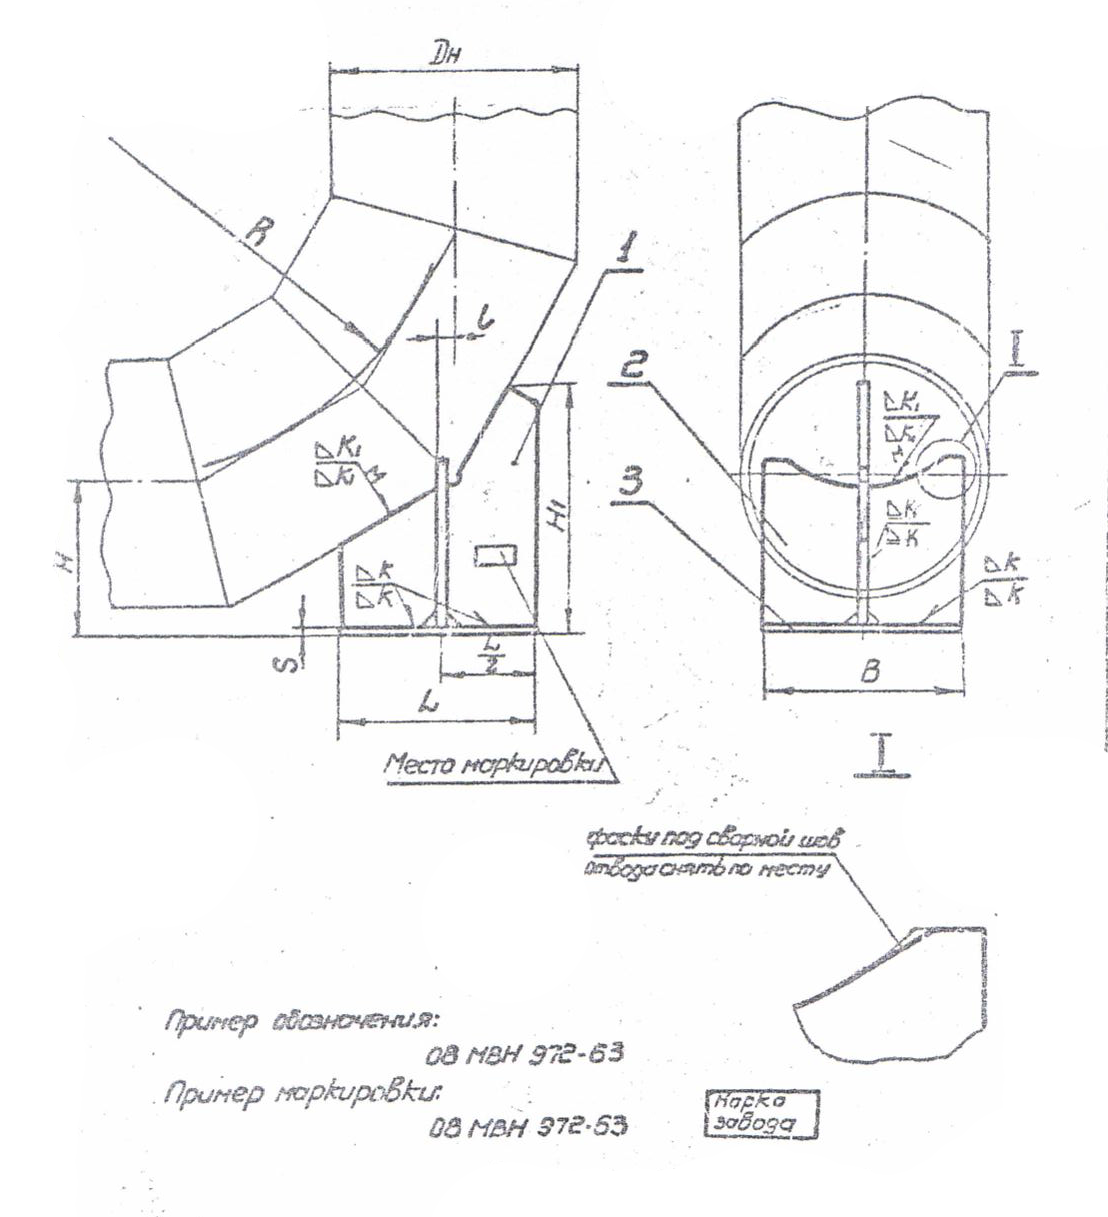 Dн
R
1
l
I
2
ΔK₁
ΔK
ΔK₁
ΔK
3
H
H₁
ΔK
ΔK
ΔK
ΔK
ΔK
ΔK
S
L/2
L
B
Место маркировки
I
фаску под сварной шов
отвода снять по месту
Пример обозначения:
08 МВН 972-63
Пример маркировки:
08 МВН 972-63
Марка
завода